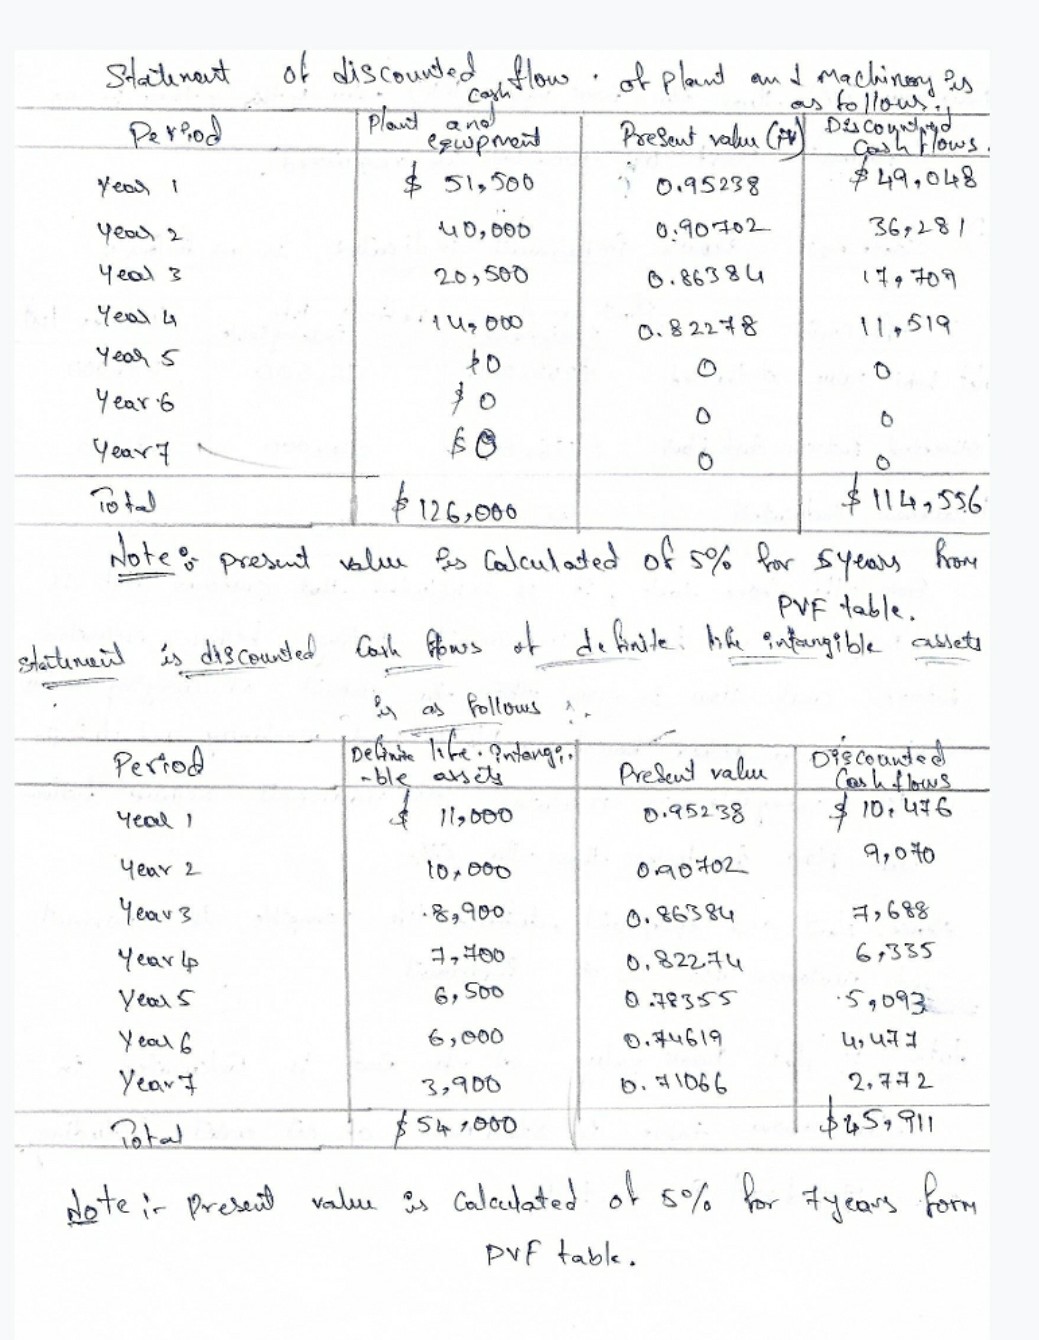 Statement of discounted cash flow of plant and Machinery is
as follows:.
Period Plant and equipment Present value (PV) Discounted Cash flows.
Year 1 $ 51,500 0.95238 $49,048
Year 2 40,000 0.90702 36,281
Year 3 20,500 0.86384 17,709
Year 4 14,000 0.82278 11,519
Year 5 $0 0 0
Year 6 $0 0 0
Year 7 $0 0 0
Total $126,000 $114,556
Note: present value is Calculated of 5% for 5 years from
PVF table.
statement is discounted Cash flows of definite life intangible assets
is as follows :.
Period Definite life intangi-
-ble assets Present value Discounted Cash flows
Year 1 $ 11,000 0.95238 $ 10,476
Year 2 10,000 0.90702 9,070
Year 3 8,900 0.86384 7,688
Year 4 7,700 0.82274 6,335
Year 5 6,500 0.78355 5,093
Year 6 6,000 0.74619 4,477
Year 7 3,900 0.71066 2,772
Total $54,000 $45,911
Note :- Present value is Calculated of 5% for 7 years form
PVF table.